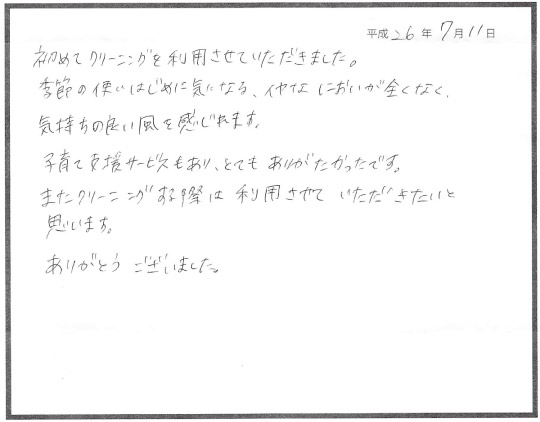 平成26年7月11日
初めてクリーニングを利用させていただきました。
季節の使いはじめに気になる、イヤなにおいが全くなく、
気持ちの良い風を感じれます。
子育て支援サービスもあり、とてもありがたかったです。
またクリーニングする際は利用させていただきたいと
思います。
ありがとうございました。